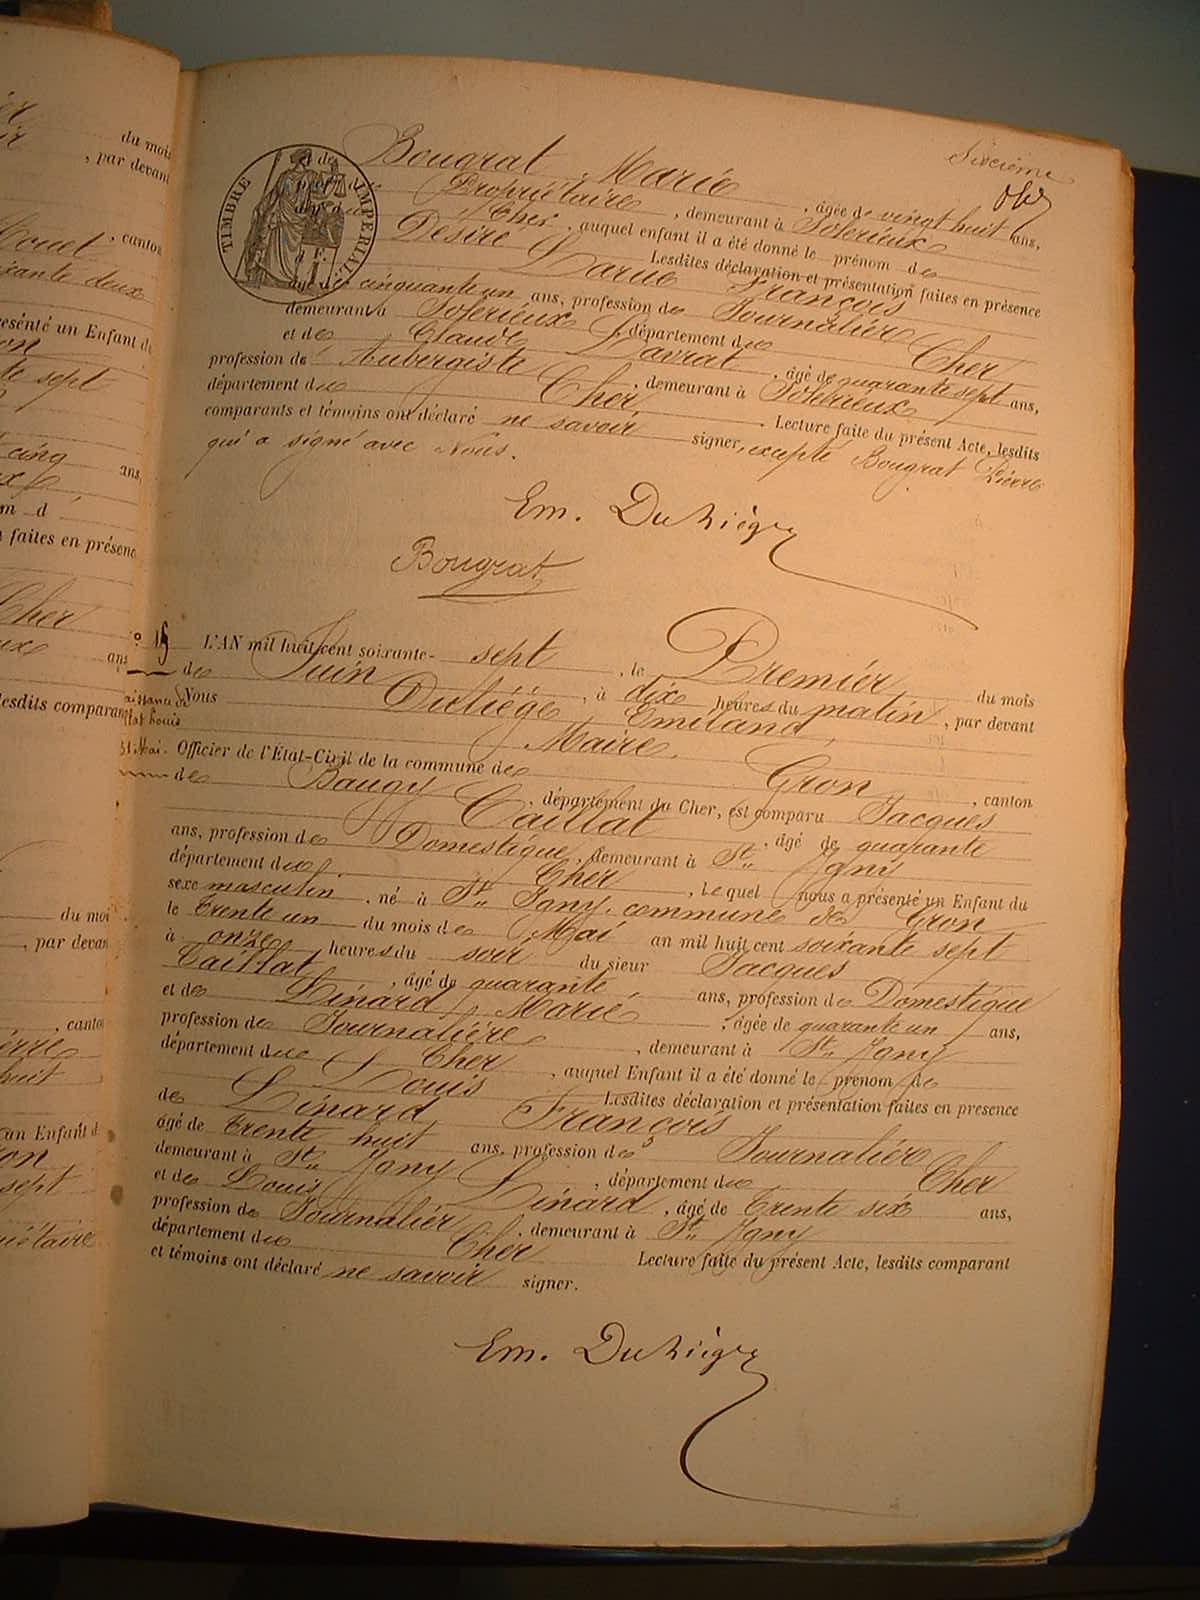 Sixième
et de Bougrat Marie, âgée de vingt huit ans,
Propriétaire, demeurant à Solérieux
Cher, auquel enfant il a été donné le prénom de
Désiré Lesdites déclaration et présentation faites en présence
Larue François
âgé de cinquante un ans, profession de Journalier
demeurant à Solérieux, département de Cher
et de Claude Lavrat, âgé de quarante sept ans,
profession de Aubergiste, demeurant à Solérieux
département de Cher. Lecture faite du présent Acte, lesdits
comparants et témoins ont déclaré ne savoir signer, excepté Bougrat Pierre
qui a signé avec Nous.
Em. Duliège
Bougrat
TIMBRE IMPERIAL
L'AN mil huit cent soixante-sept, le Premier du mois
de Juin, à dix heures du matin, par devant
Nous Duliége Emiland,
Maire.
Officier de l'État-Civil de la commune de Gron, canton
de Baugy, département du Cher, est comparu Jacques
Caillat, âgé de quarante
ans, profession de Domestique, demeurant à St. Igny
département de Cher, lequel nous a présenté un Enfant du
sexe masculin, né à St. Igny, commune de Gron
le trente un du mois de Mai an mil huit cent soixante sept
à onze heures du soir du sieur Jacques
Caillat, âgé de quarante ans, profession de Domestique
et de Linard, Marie, âgée de quarante un ans,
profession de Journalière, demeurant à St. Igny
département de Cher, auquel Enfant il a été donné le prénom de
Louis Lesdites déclaration et présentation faites en présence
de Linard François
âgé de trente huit ans, profession de Journalier
demeurant à St. Igny, département de Cher
et de Louis Linard, âgé de trente six ans,
profession de Journalier, demeurant à St. Igny
département de Cher Lecture faite du présent Acte, lesdits comparant
et témoins ont déclaré ne savoir signer.
Em. Duliège